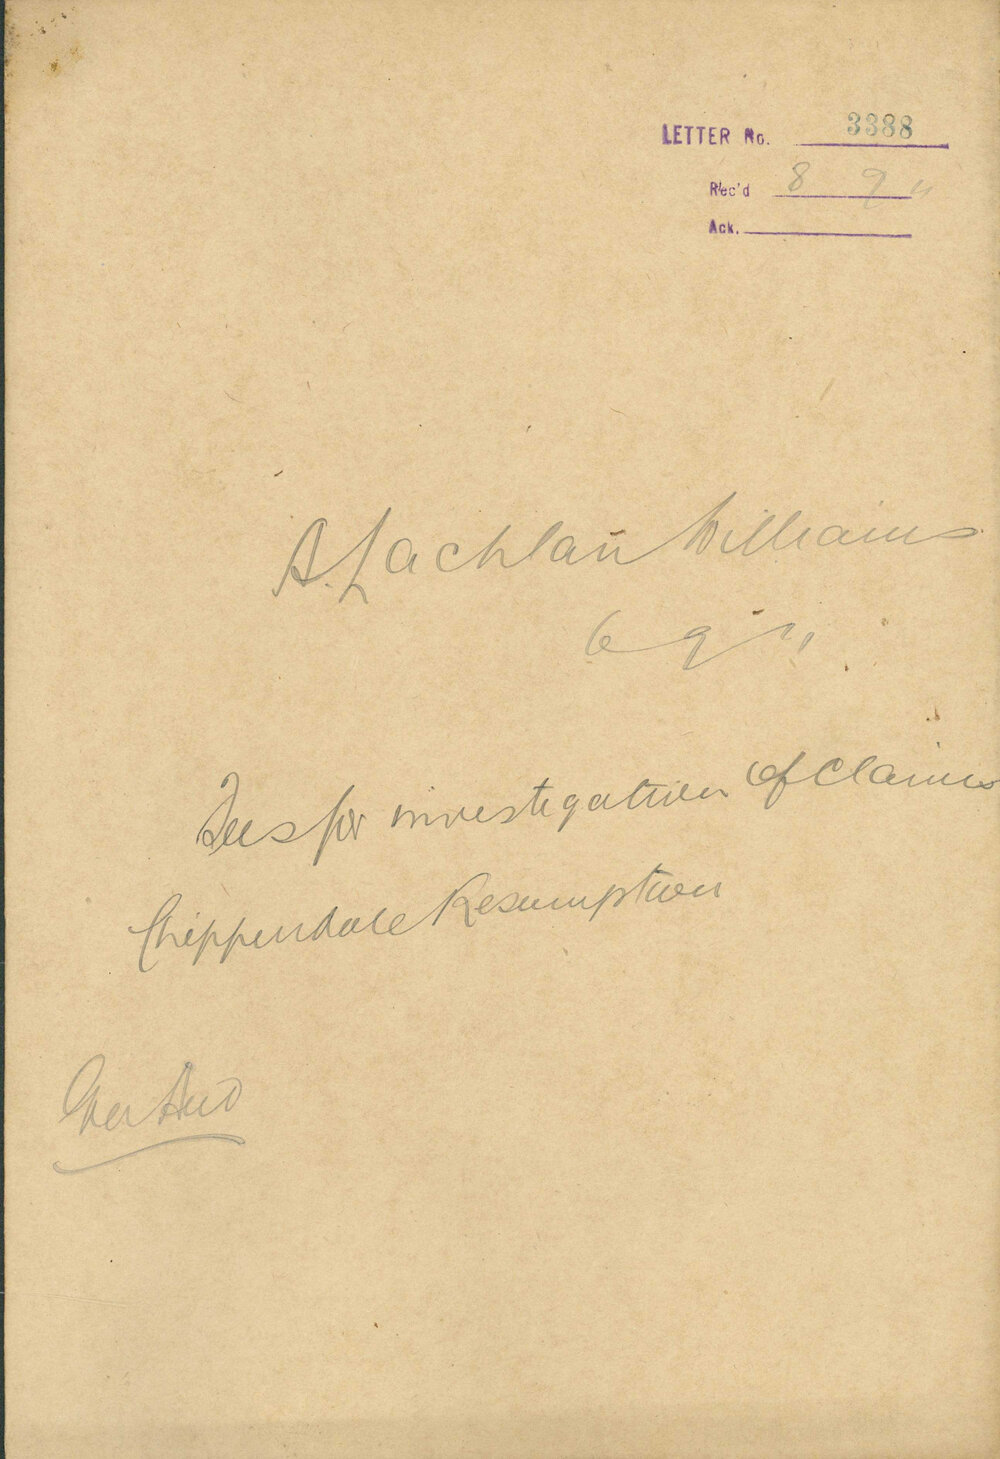 LETTER No. 3388
Rec'd 8 9 11
Ack.
A. Lachlan Williams
6 9 11
Fees for investigation of Claims
Chippendale Resumption